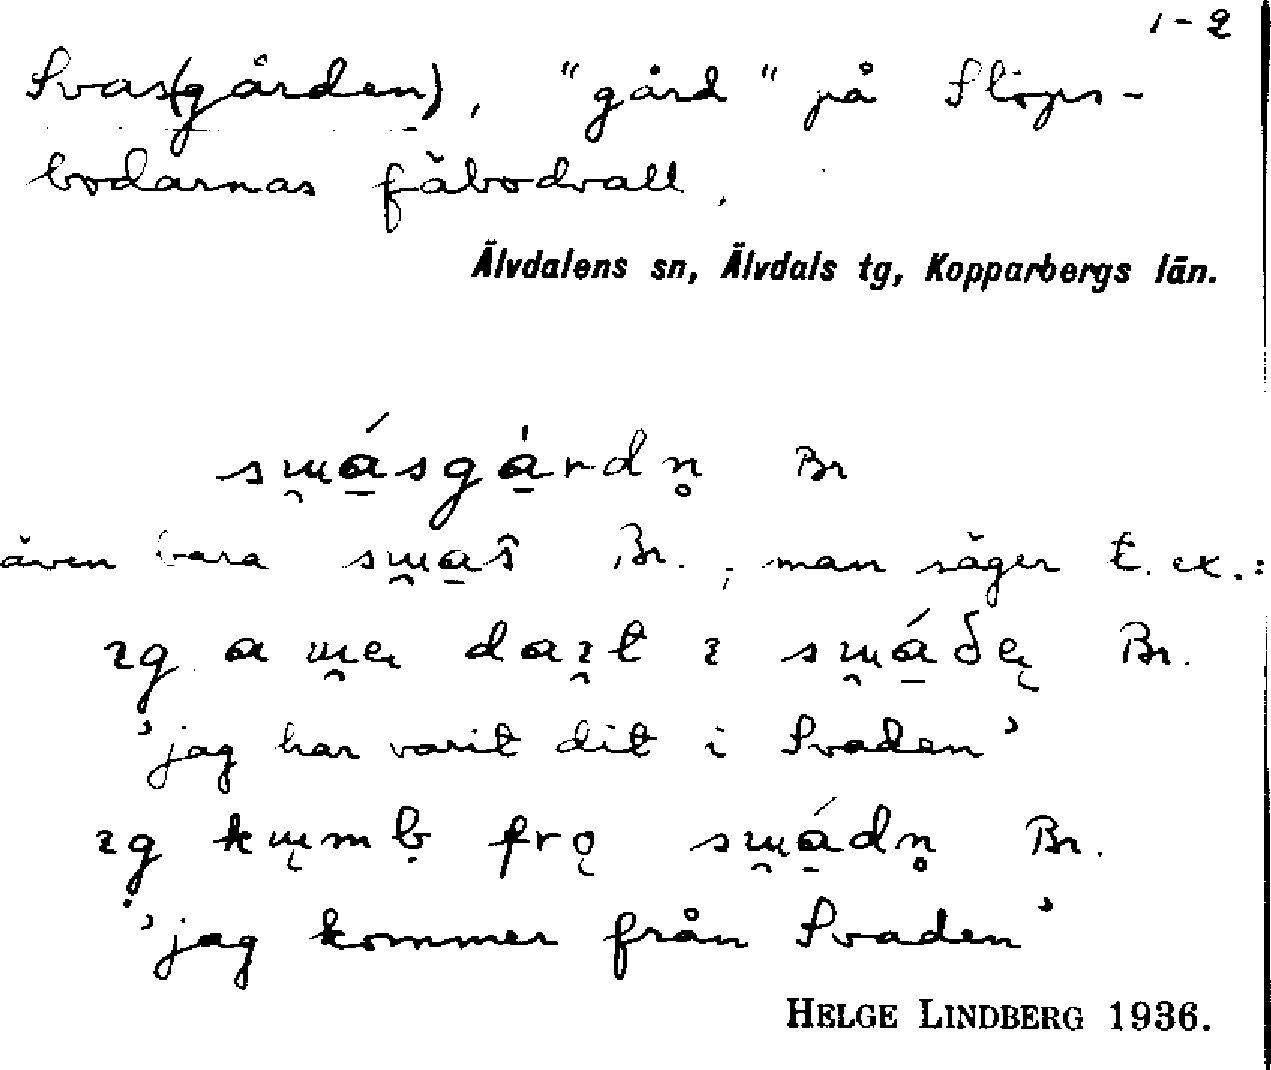 1-2
Svas(gården), "gård" på Slöps-
bodarnas fäbodvall.
Älvdalens sn, Älvdals tg, Kopparbergs län.
sɯ̯ásgàrdn̥ Br
även bara sɯ̯as̑ Br.; man säger t. ex.:
ɩg a daɩ̯t ɩ Br.
'jag har varit dit i Svaden'
ɩg sɯ̯ádn̥ Br.
'jag kommer från Svaden'
HELGE LINDBERG 1936.